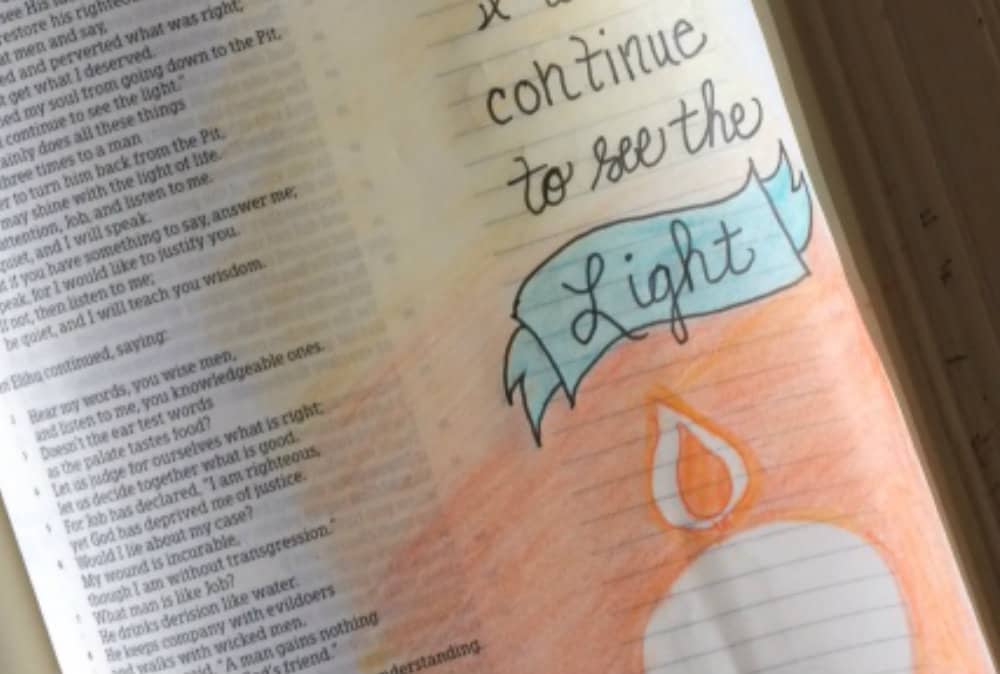 see His
restore his
at men and say,
and perverted what was right;
get what I deserved.
my soul from going down to the Pit,
continue to see the light."
does all these things
three times to a man
to turn him back from the Pit,
may shine with the light of life.
Job, and listen to me.
quiet, and I will speak.
if you have something to say, answer me;
for I would like to justify you.
not, then listen to me;
be quiet, and I will teach you wisdom.
Elihu continued, saying:
Hear my words, you wise men,
and listen to me, you knowledgeable ones.
Doesn't the ear test words
as the palate tastes food?
Let us judge for ourselves what is right;
let us decide together what is good.
For Job has declared, "I am righteous,
yet God has deprived me of justice.
Would I lie about my case?
My wound is incurable,
though I am without transgression."
What man is like Job?
He drinks derision like water.
He keeps company with evildoers
and walks with wicked men.
"A man gains nothing
friend."
understanding.
continue
to see the
Light